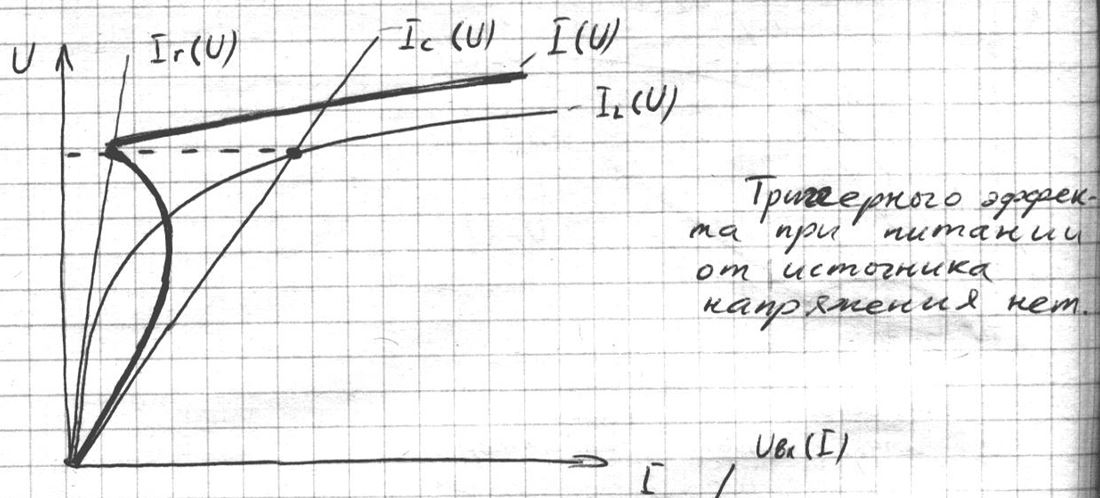 U
Ir(U)
Ic(U)
I(U)
IL(U)
Триггерного эффек-
та при питании
от источника
напряжения нет.
Uвх(I)
I